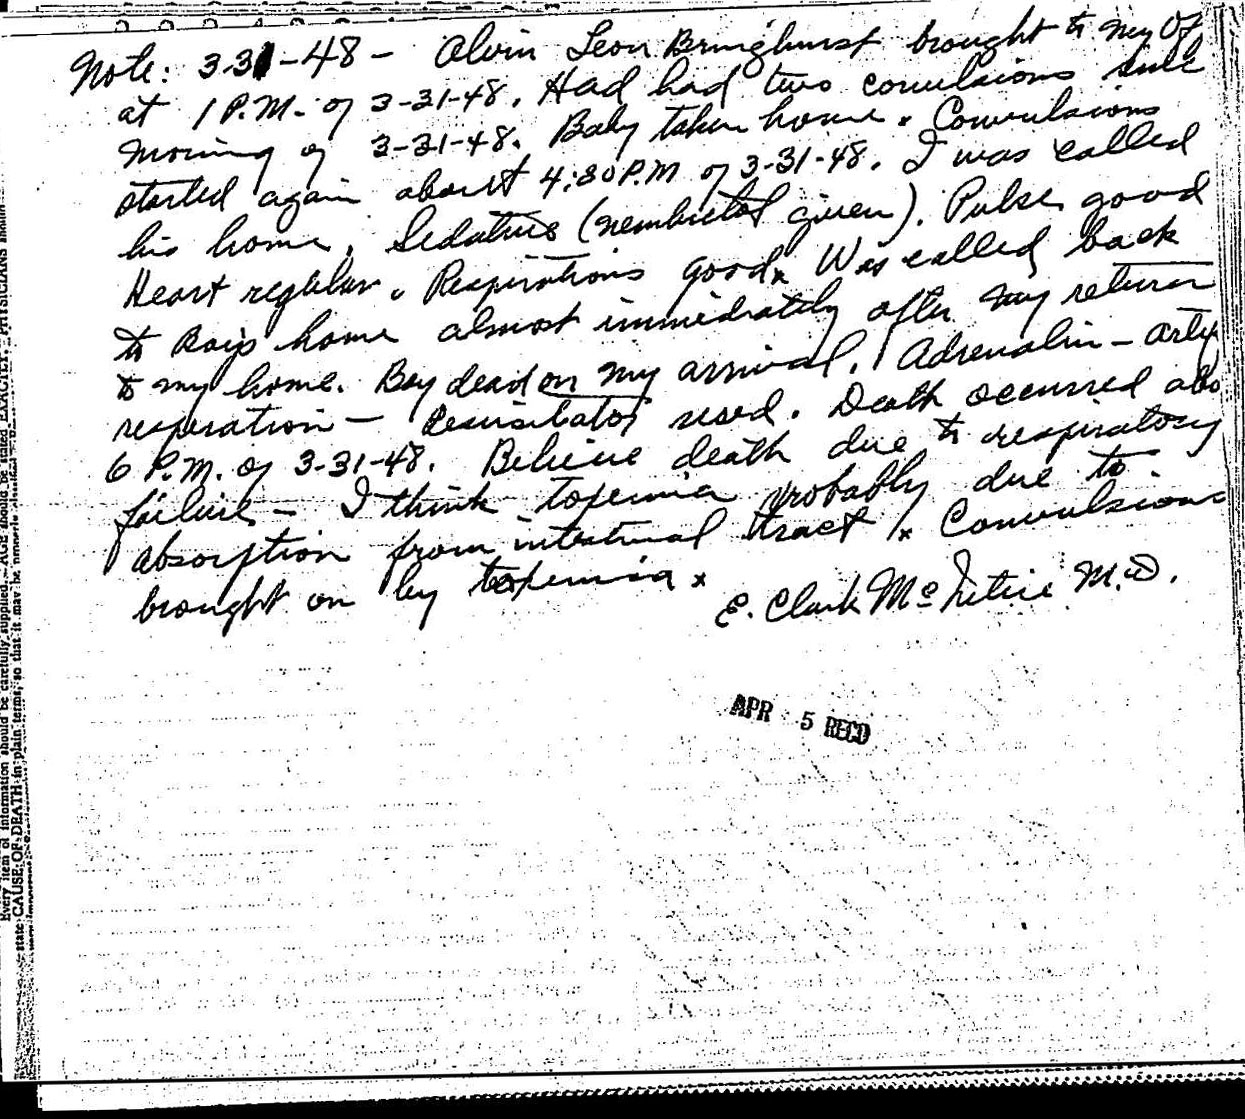 Note: 3-31-48 - Alvin Leon Bringhurst brought to my Of
at 1 P.M. of 3-31-48. Had had two convulsions since
morning of 3-31-48. Baby taken home. Convulsions
started again about 4:30 P.M of 3-31-48. I was called
his home. Sedative (nembutal given). Pulse good
Heart regular. Respirations good. Was called back
to Boy's home almost immediately after my return
to my home. Boy dead on my arrival. Adrenalin - arty
respiration - resuscitator used. Death occurred abo
6 P.M. of 3-31-48. Believe death due to respiratory
failure - I think toxemia probably due to
absorption from intestinal tract. Convulsions
brought on by toxemia.
E. Clark McIntire M.D.
APR 5 RECD
Every item of information should be carefully supplied. AGE should be stated EXACTLY. PHYSICIANS should
state CAUSE OF DEATH in plain terms, so that it may be properly